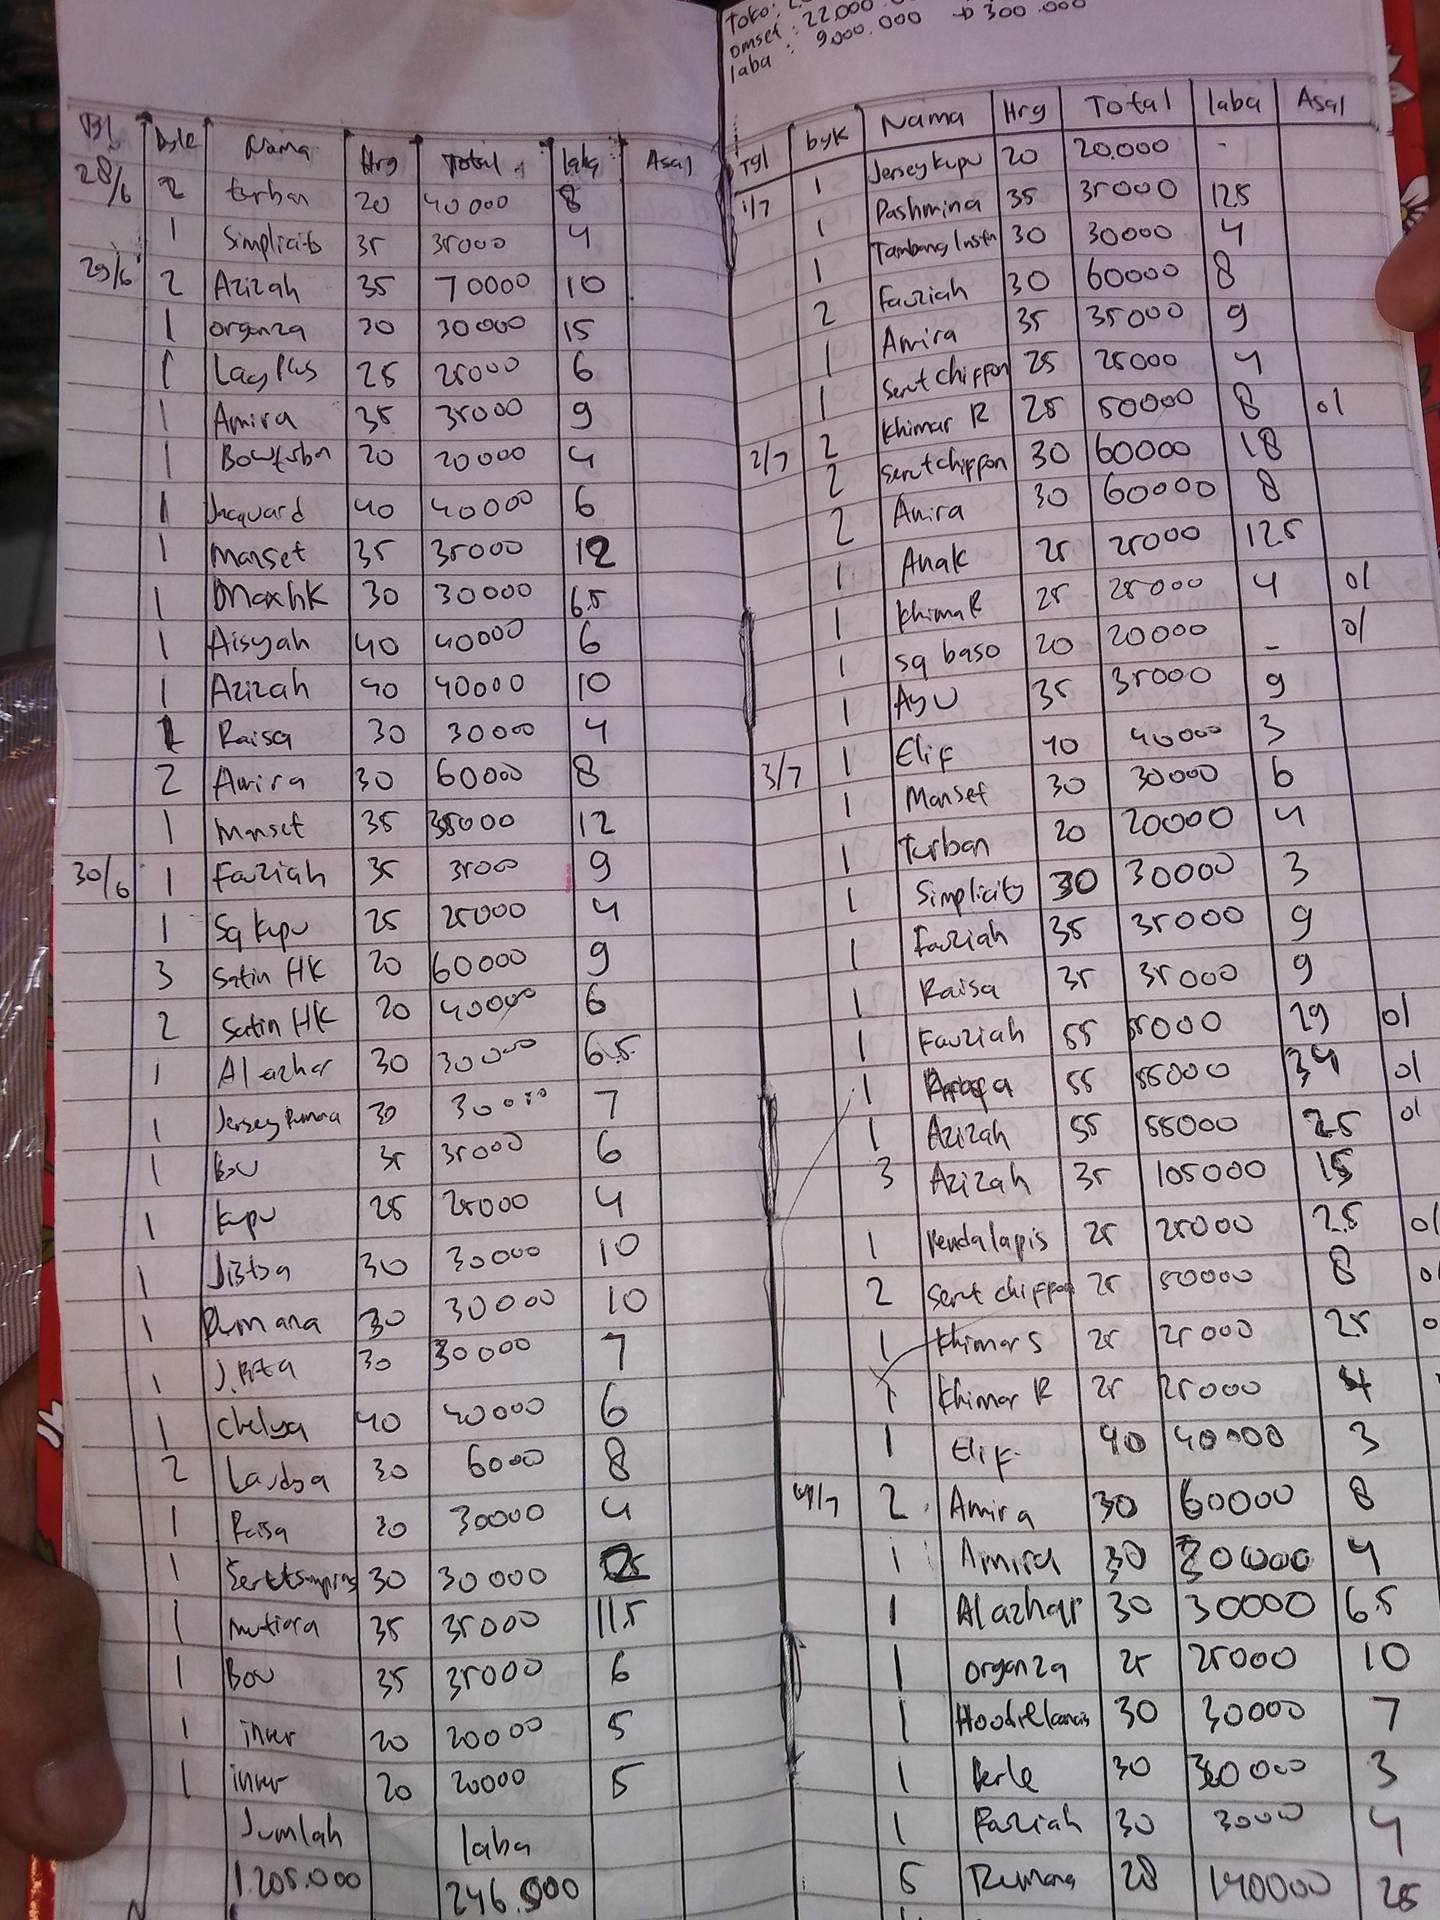 Tgl byk Nama Hrg Total laba Asal
28/6 2 turban 20 40000 8
1 Simplicity 35 35000 4
29/6 2 Azizah 35 70000 10
1 organza 30 30000 15
1 25 25000 6
1 Amira 35 35000 9
1 20 20000 4
1 Jacquard 40 40000 6
1 Manset 35 35000 12
1 Maxhk 30 30000 6.5
1 Aisyah 40 40000 6
1 Azizah 40 40000 10
1 Raisa 30 30000 4
2 Amira 30 60000 8
1 Manset 35 35000 12
30/6 1 Fauziah 35 35000 9
1 Sq kupu 25 25000 4
3 Satin HK 20 60000 9
2 Satin HK 20 40000 6
1 Al azhar 30 30000 6.5
1 Jersey Rumana 30 30000 7
1 Bow 35 35000 6
1 kupu 25 25000 4
1 30 30000 10
1 Rumana 30 30000 10
1 30 30000 7
1 Chelsya 40 40000 6
2 Laudya 30 60000 8
1 Raisa 30 30000 4
1 30 30000
1 Mutiara 35 35000 11.5
1 Bow 35 35000 6
1 inner 20 20000 5
1 inner 20 20000 5
Jumlah laba
1.205.000 246.500
Toko:
omset : 22.000.
laba : 9.000.000 → 300.000
Tgl byk Nama Hrg Total laba Asal
1/7 1 Jersey kupu 20 20.000 -
1 Pashmina 35 35000 125
1 30 30000 4
2 Fauziah 30 60000 8
1 Amira 35 35000 9
1 Serut chiffon 25 25000 4
2/7 2 Khimar R 25 50000 8 ol
2 Serut chiffon 30 60000 18
2 Amira 30 60000 8
1 Anak 25 25000 125
1 Khimar R 25 25000 4 ol
1 sq baso 20 20000 - ol
1 Ayu 35 35000 9
3/7 1 Elif 40 40000 3
1 Manset 30 30000 6
1 Turban 20 20000 4
1 Simplicity 30 30000 3
1 Fauziah 35 35000 9
1 Raisa 35 35000 9
1 Fauziah 55 55000 29 ol
1 55 55000 34 ol
1 Azizah 55 55000 25 ol
3 Azizah 35 105000 15
1 Renda lapis 25 25000 25 ol
2 Serut chiffon 25 50000 8
1 Khimar S 25 25000 25
1 Khimar R 25 25000 4
1 Elif 40 40000 3
4/7 2 Amira 30 60000 8
1 Amira 30 30000 4
1 Al azhar 30 30000 6.5
1 organza 25 25000 10
1 30 30000 7
1 Perle 30 30000 3
1 Fauziah 30 30000 4
5 Rumana 28 140000 25